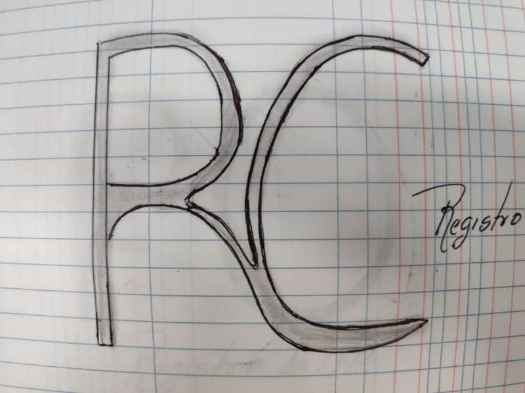 RC
Registro